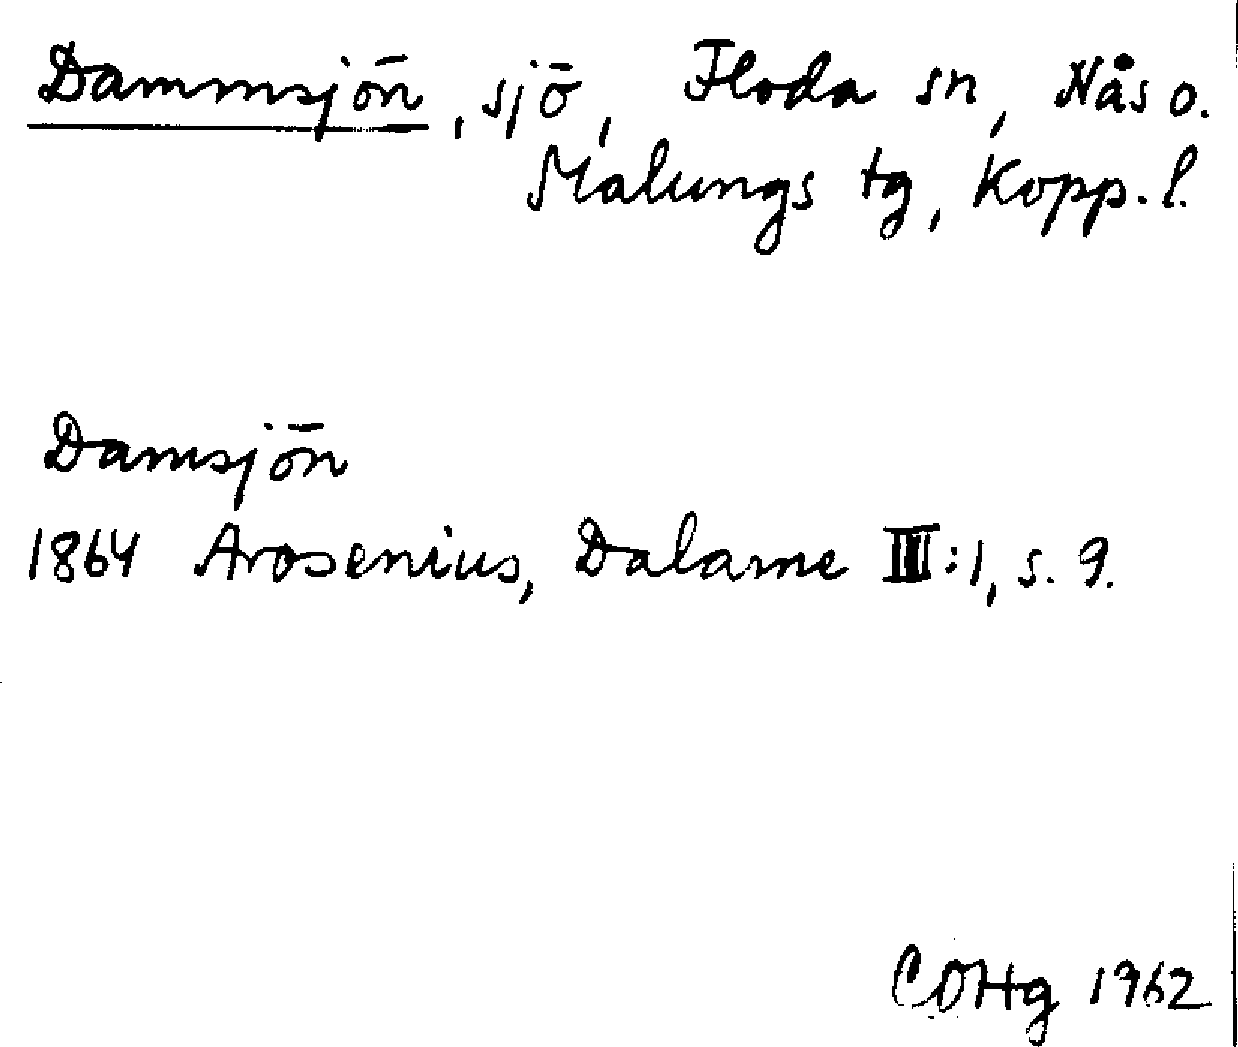 Dammsjön, sjö, Floda sn, Nås o.
Malungs tg, Kopp. l.
Damsjön
1864 Arosenius, Dalarne III:1, s. 9.
COHg 1962